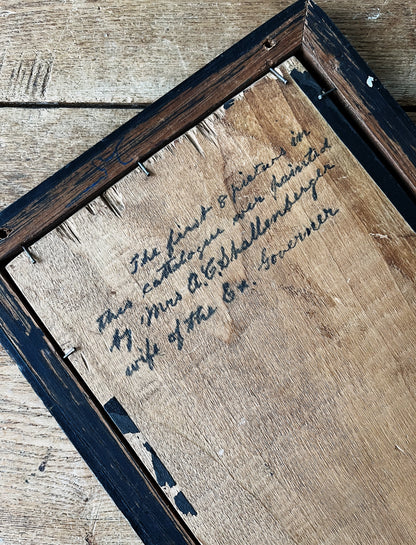 The first 8 picturs in
this cattalogue wer painted
by Mrs A.C. Shallenberger
wife of the Ex. Governer